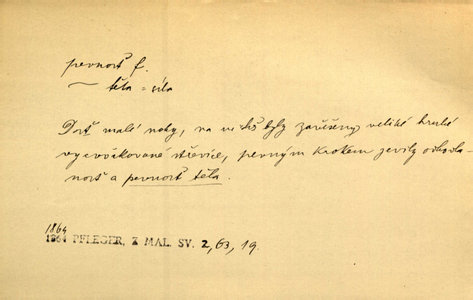 pevnosť f.
~ těla = síla
Dosť malé nohy, na nichž byly zavěšeny veliké hrubé
vycvočkované střevíce, pevným krokem jevily odhodla-
nosť a pevnosť těla.
1864
1864 PFLEGER, Z MAL. SV. 2, 63, 19.